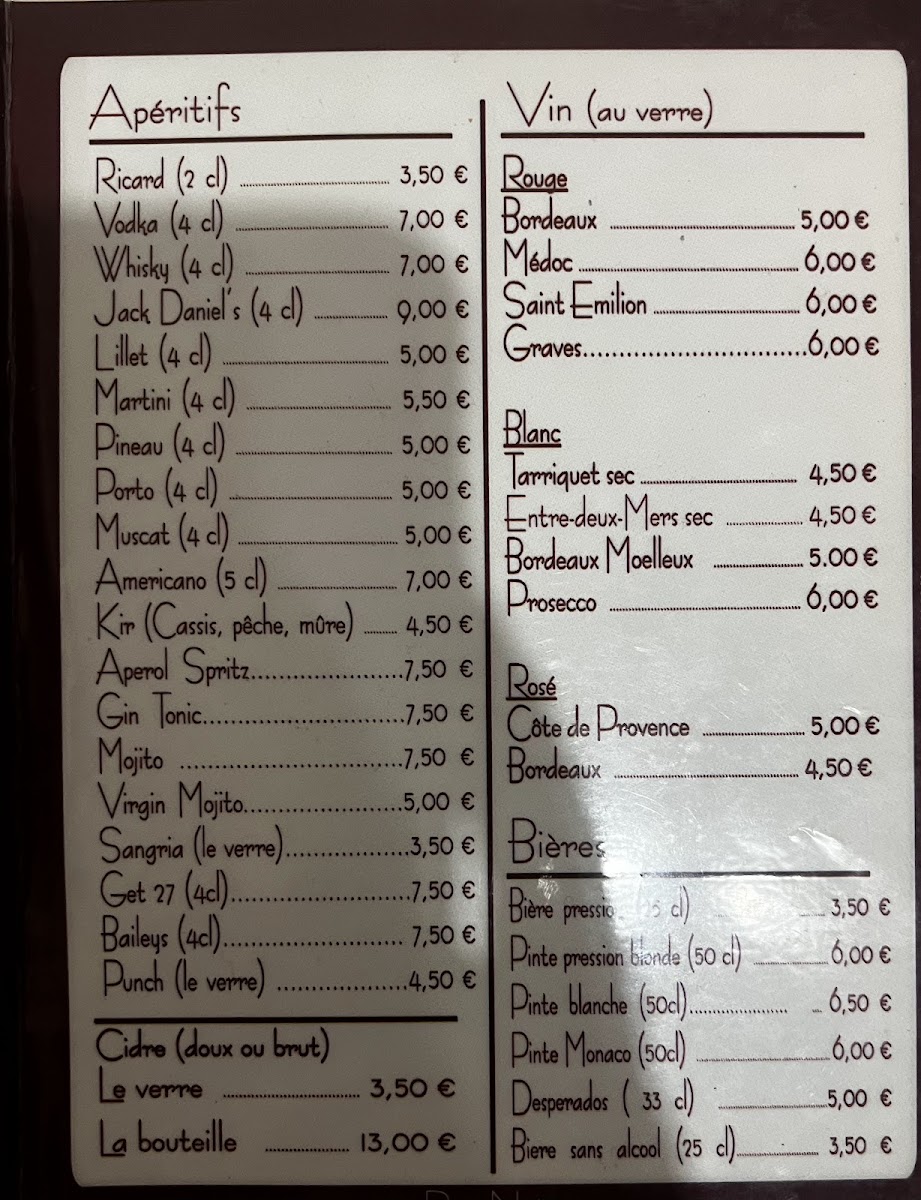 Apéritifs
Ricard (2 cl) 3,50 €
Vodka (4 cl) 7,00 €
Whisky (4 cl) 7,00 €
Jack Daniel's (4 cl) 9,00 €
Lillet (4 cl) 5,00 €
Martini (4 cl) 5,50 €
Pineau (4 cl) 5,00 €
Porto (4 cl) 5,00 €
Muscat (4 cl) 5,00 €
Americano (5 cl) 7,00 €
Kir (Cassis, pêche, mûre) 4,50 €
Aperol Spritz 7,50 €
Gin Tonic 7,50 €
Mojito 7,50 €
Virgin Mojito 5,00 €
Sangria (le verre) 3,50 €
Get 27 (4cl) 7,50 €
Baileys (4cl) 7,50 €
Punch (le verre) 4,50 €
Cidre (doux ou brut)
Le verre 3,50 €
La bouteille 13,00 €
Vin (au verre)
Rouge
Bordeaux 5,00 €
Médoc 6,00 €
Saint Emilion 6,00 €
Graves 6,00 €
Blanc
Tarriquet sec 4,50 €
Entre-deux-Mers sec 4,50 €
Bordeaux Moelleux 5.00 €
Prosecco 6,00 €
Rosé
Côte de Provence 5,00 €
Bordeaux 4,50 €
Bières
Bière cl) 3,50 €
Pinte pression blonde (50 cl) 6,00 €
Pinte blanche (50cl) 6,50 €
Pinte Monaco (50cl) 6,00 €
Desperados ( 33 cl) 5,00 €
Biere sans alcool (25 cl) 3,50 €